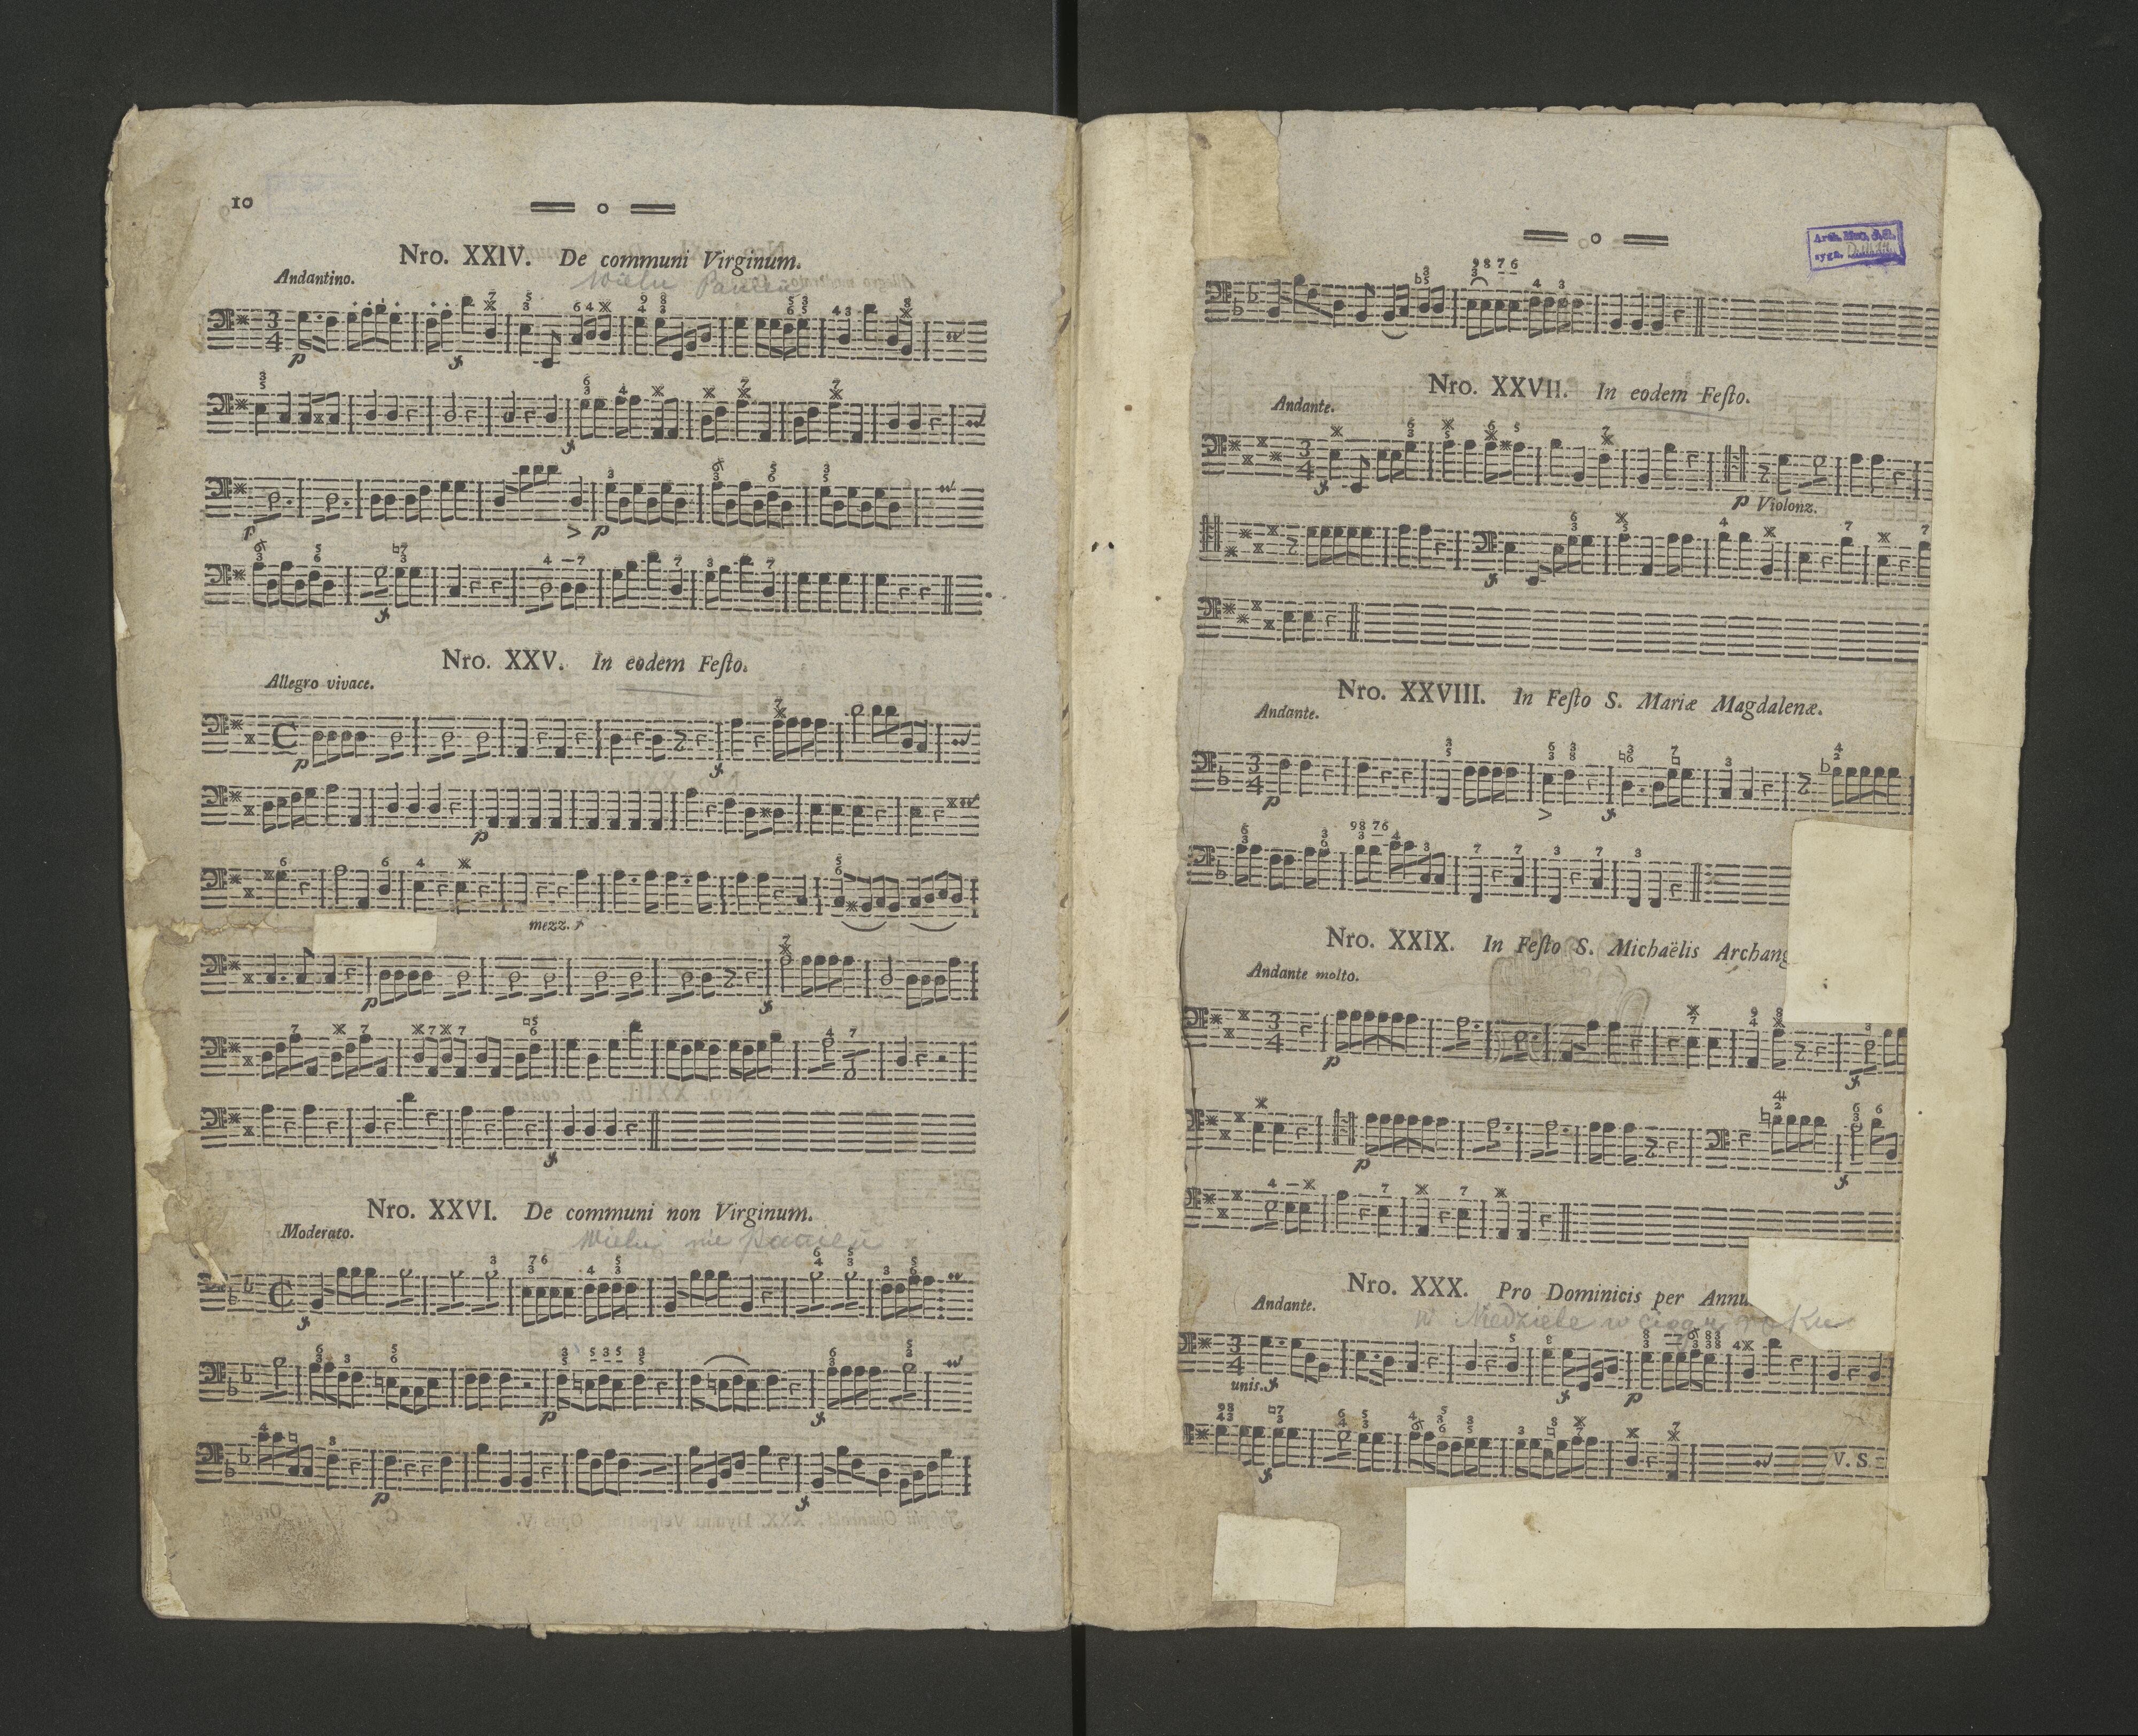 10
Nro. XXIV. De communi Virginum.
Wielu Panien
Andantino.
Nro. XXV. In eodem Feſto.
Allegro vivace.
mezz. f
Nro. XXVI. De communi non Virginum.
Wielu nie Panien
Moderato.
Nro. XXVII. In eodem Feſto.
Andante.
p Violonz.
Nro. XXVIII. In Feſto S. Mariæ Magdalenæ.
Andante.
Nro. XXIX. In Feſto S. Michaëlis Archang
Andante molto.
Nro. XXX. Pro Dominicis per Annu
w Niedziele w ciągu roku
Andante.
unis. f
V. S.